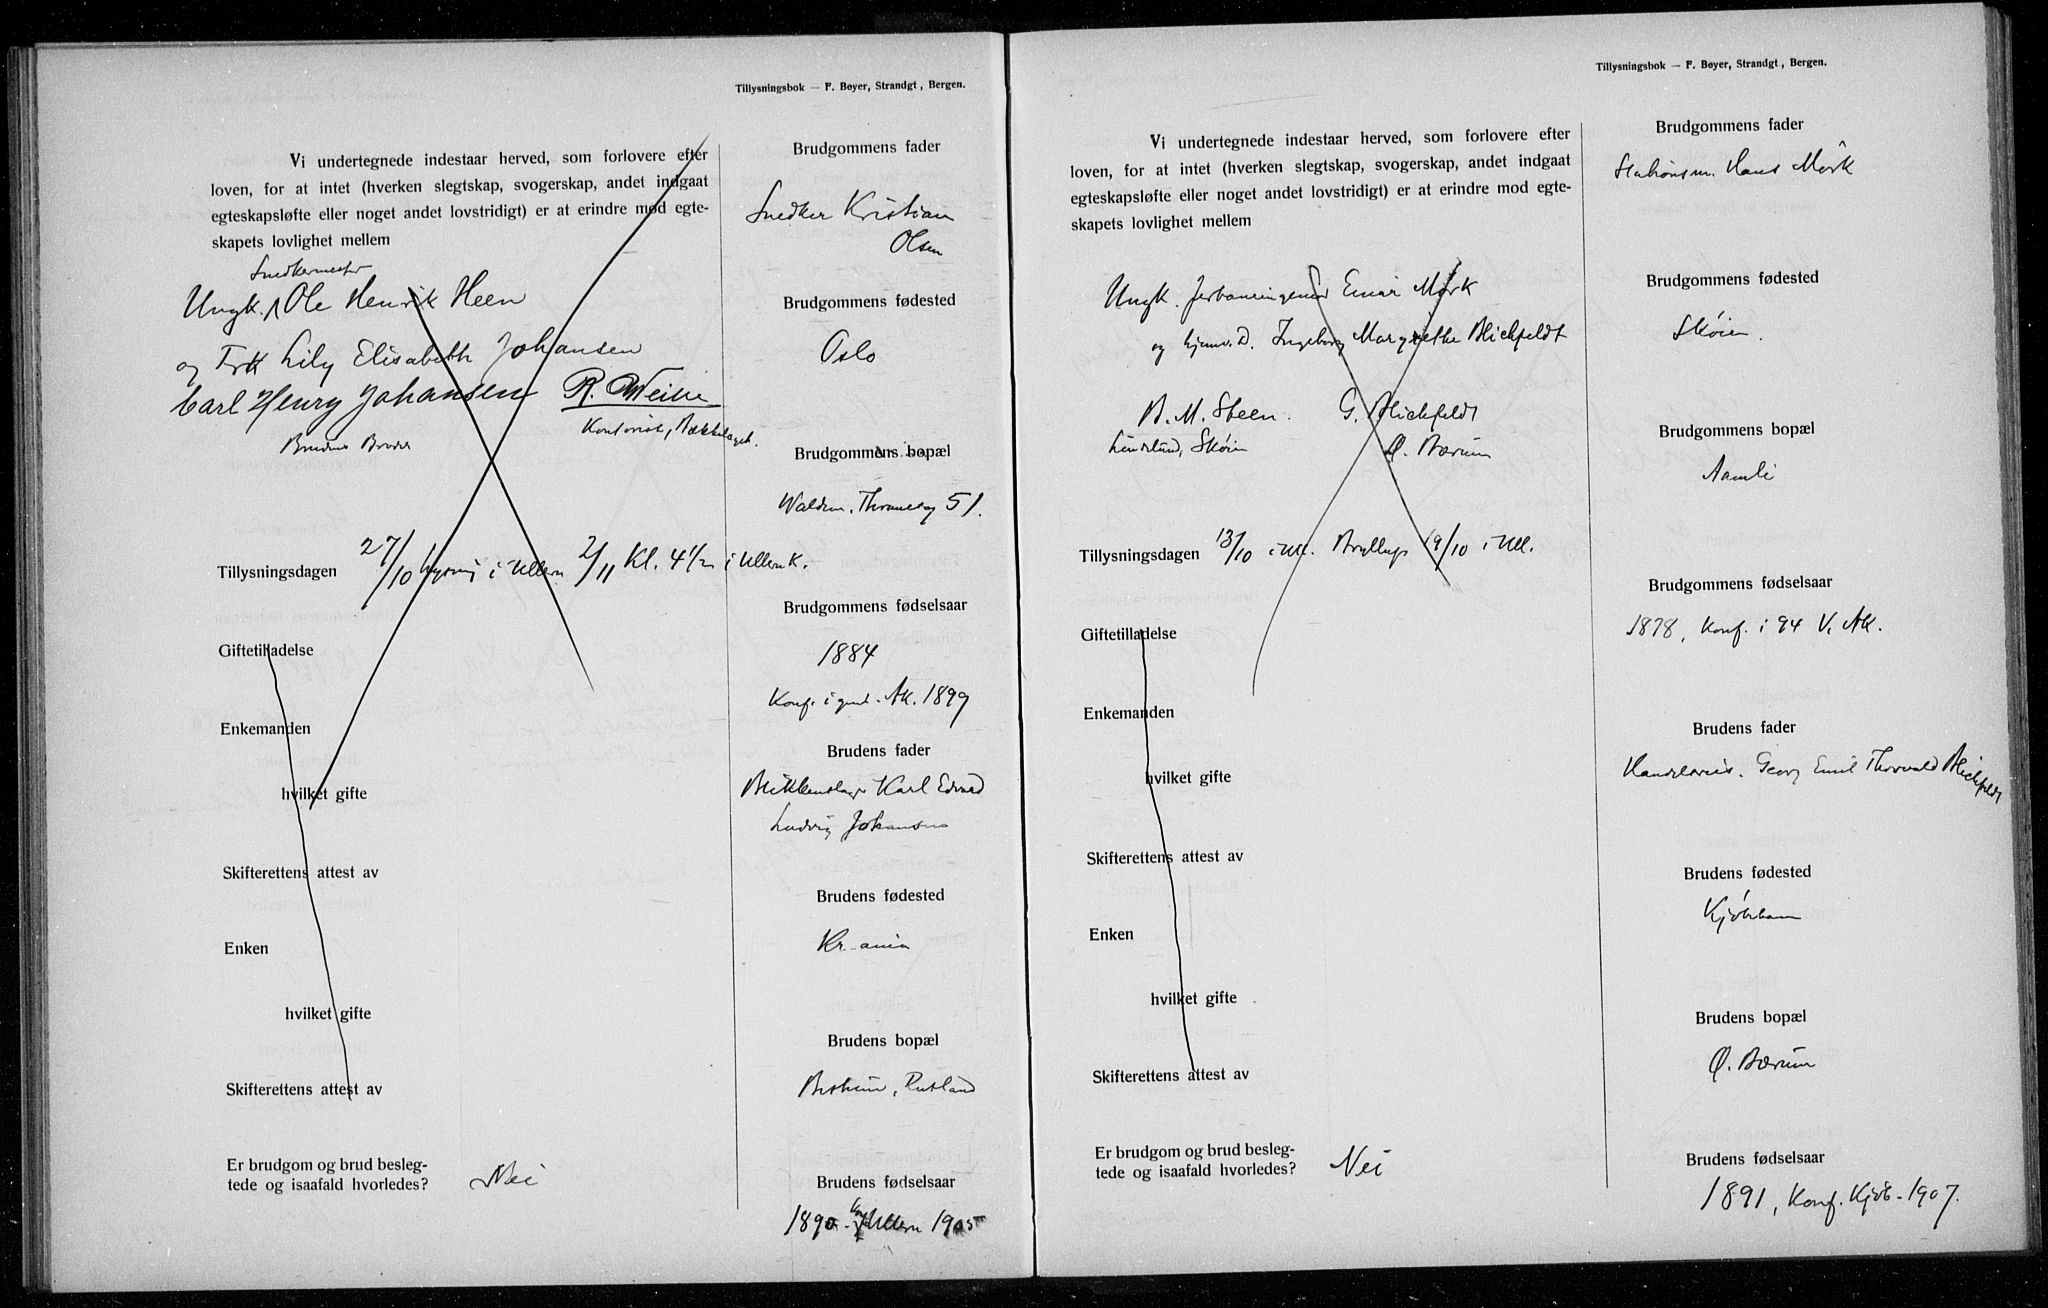 Tillysningsbok — F. Bøyer, Strandgt, Bergen.
Vi undertegnede indestaar herved, som forlovere efter
loven, for at intet (hverken slegtskap, svogerskap, andet indgaat
egteskapsløfte eller noget andet lovstridigt) er at erindre mod egte-
skapets lovlighet mellem
Snedkermester
Ungk. Ole Henrik Heen
og Frk Lily Elisabeth Johansen
Carl Henry Johansen R.
Brudens Broder
Kontorist, Bækkelaget.
Tillysningsdagen 27/10 lysning i Ullern 2/11 Kl. 4 1/2 i Ullern K.
Giftetilladelse
Enkemanden
hvilket gifte
Skifterettens attest av
Enken
hvilket gifte
Skifterettens attest av
Er brudgom og brud besleg-
tede og isaafald hvorledes? Nei
Brudgommens fader
Snedker Kristian
Olsen
Brudgommens fødested
Oslo
Brudgommens bopæl
Waldem. Thranesg 51.
Brudgommens fødselsaar
1884
Konf. i Ak. 1899
Brudens fader
Blikkenslager Karl Edvard
Ludvig Johansen
Brudens fødested
Kr.ania
Brudens bopæl
Bestum,
Brudens fødselsaar
1890 - Konf Ullern 1905
Tillysningsbok — F. Bøyer, Strandgt, Bergen.
Vi undertegnede indestaar herved, som forlovere efter
loven, for at intet (hverken slegtskap, svogerskap, andet indgaat
egteskapsløfte eller noget andet lovstridigt) er at erindre mod egte-
skapets lovlighet mellem
Ungk. Jerbaneingeniør Einar Mørk
og hjemv. D. Ingeborg Margrethe Blichfeldt
B. M. Steen. G. Blichfeldt
Lindelund, Skøien Ø. Bærum
Tillysningsdagen 13/10 i Ull. Bryllup 19/10 i Ull.
Giftetilladelse
Enkemanden
hvilket gifte
Skifterettens attest av
Enken
hvilket gifte
Skifterettens attest av
Er brudgom og brud besleg-
tede og isaafald hvorledes? Nei
Brudgommens fader
Stationsm. Hans Mørk
Brudgommens fødested
Skøien.
Brudgommens bopæl
Aamli
Brudgommens fødselsaar
1878, Konf. i 94 V. Ak.
Brudens fader
Handelsreis. Georg Emil Thorvald Blichfeldt
Brudens fødested
Kjøbhavn
Brudens bopæl
Ø. Bærum
Brudens fødselsaar
1891, Konf. Kjøb. 1907.